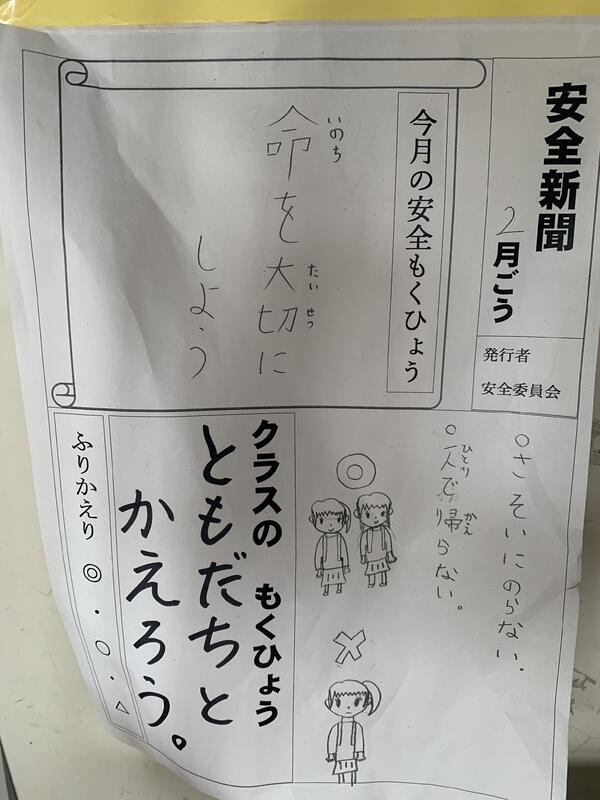 安全新聞
2月ごう
発行者
安全委員会
今月の安全もくひょう
命を大切に
いのち
たいせつ
しよう
○さそいにのらない。
○一人で帰らない。
ひとり
かえ
◎
×
クラスの もくひょう
ともだちと
かえろう。
ふりかえり ◎・○・△